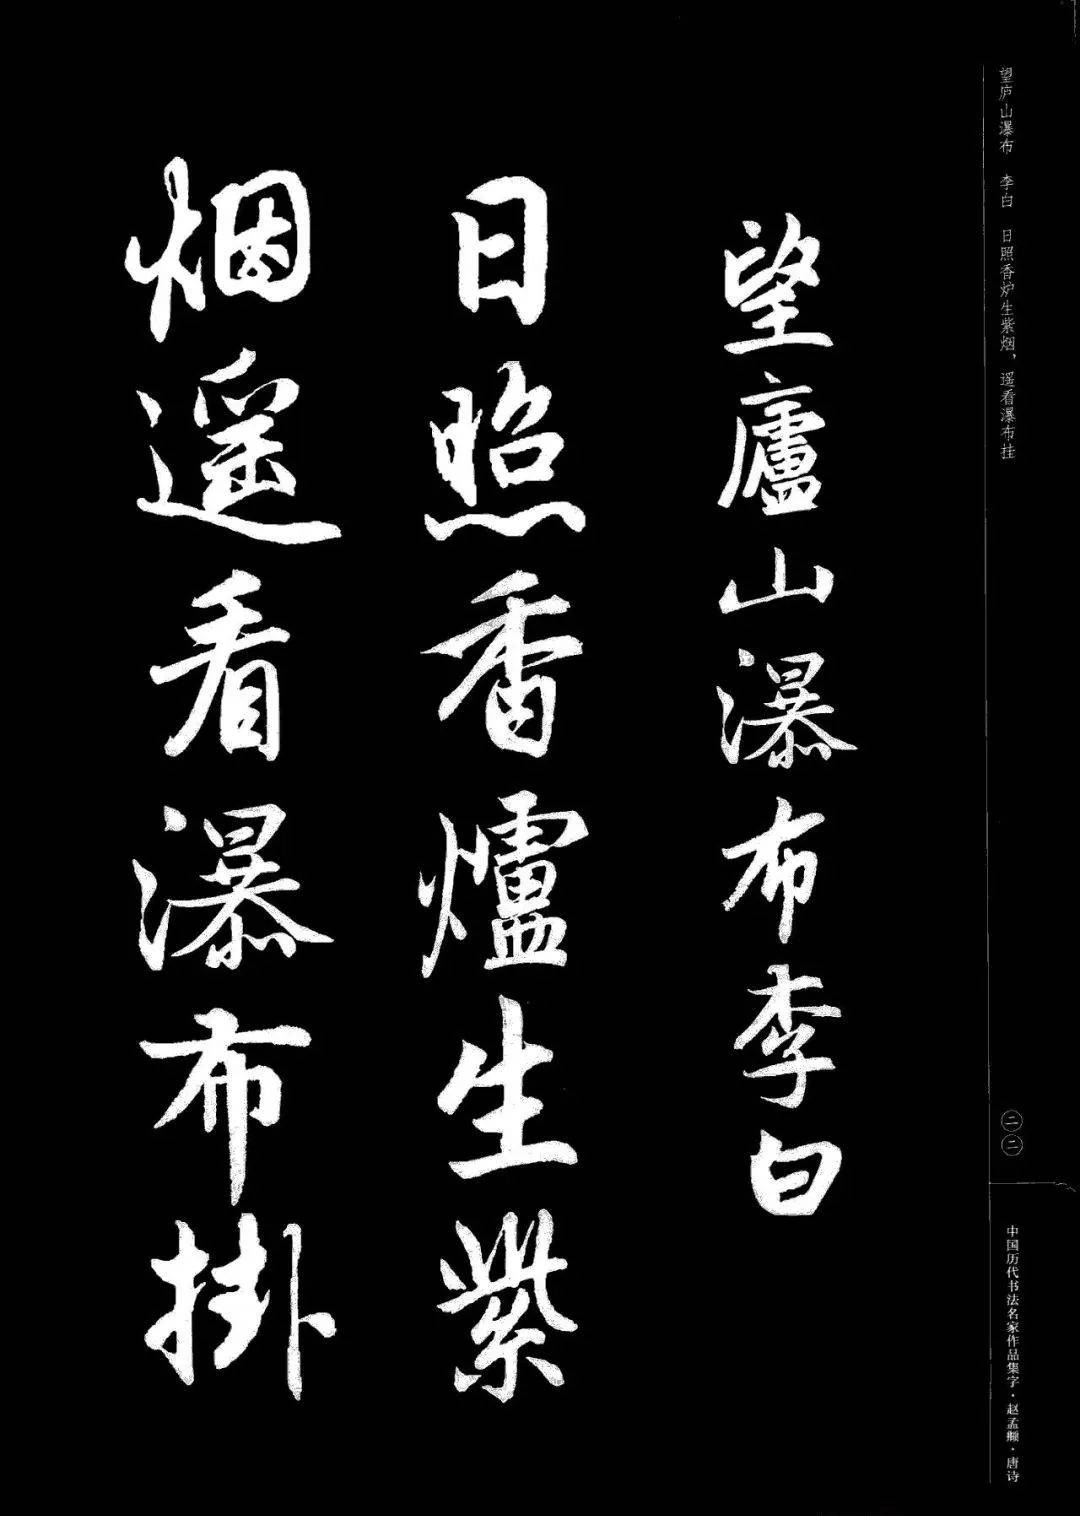 望庐山瀑布　李白　日照香炉生紫烟，遥看瀑布挂
二二
中国历代书法名家作品集字·赵孟頫·唐诗
望廬山瀑布李白
日照香爐生紫
烟遥看瀑布掛